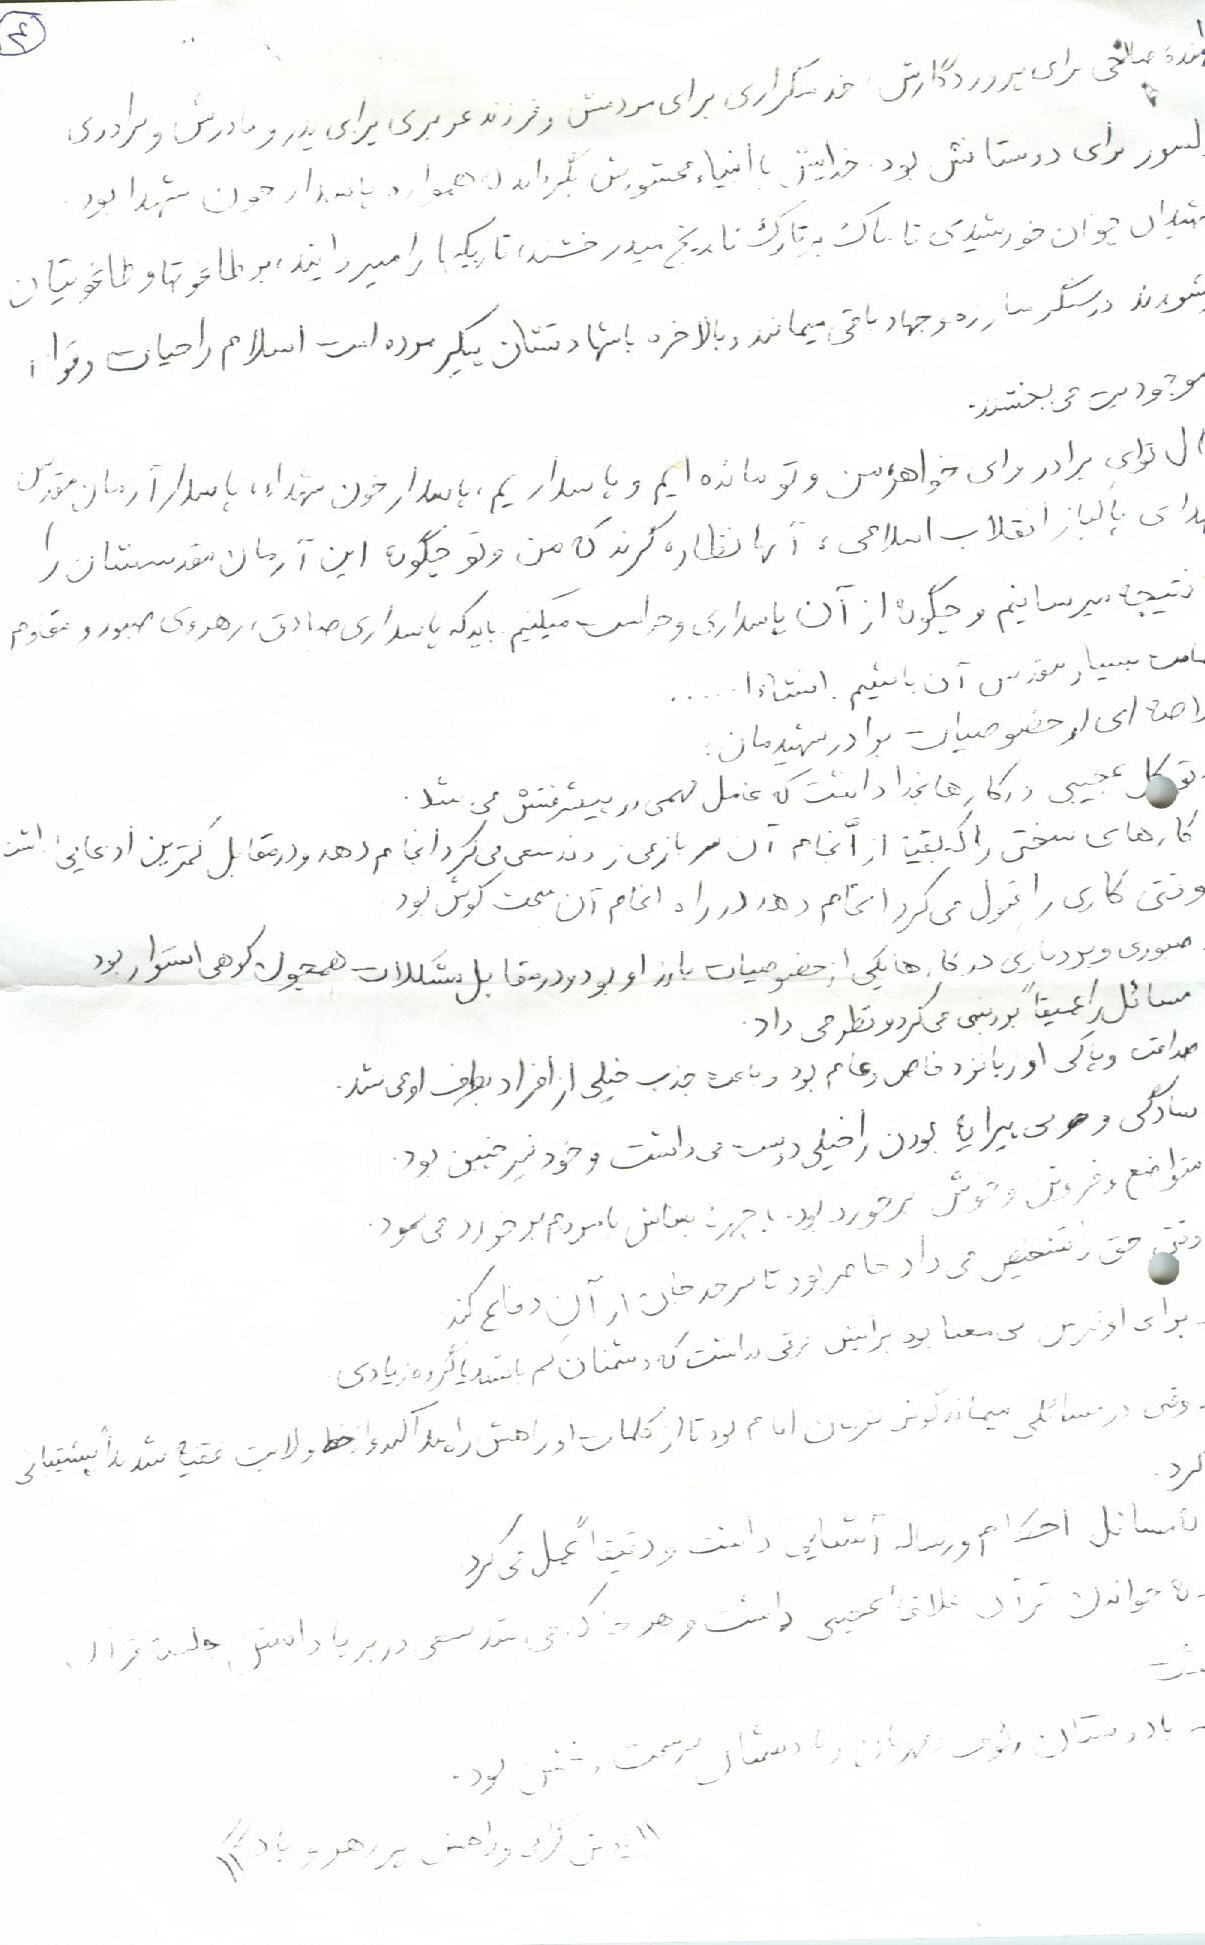 ۴
بنده صالحی برای پروردگارش، خدمتگزاری برای مردمش و فرزند عزیزی برای پدر و مادرش و برادری
دلسوز برای دوستانش بود. خدایش با انبیاء محشورش بگرداند که همواره پاسدار خون شهدا بود.
شهیدان چونان خورشیدی تابناک بر تارک تاریخ میدرخشند، تاریکیها را میزدایند، بر طاغوتها و طاغوتیان
میشورند در سنگر مبارزه و جهاد باقی میمانند و بالاخره با شهادتشان پیکر مرده است اسلام را حیات و قوام
موجودیت می بخشند.
حال توای برادر وای خواهر، من و تو مانده ایم و پاسداریم، پاسدار خون شهداء، پاسدار آرمان مقدس
شهدای پاکباز انقلاب اسلامی، آنها نظاره گرند که من و تو چگونه این آرمان مقدسشان را
به نتیجه میرسانیم و چگونه از آن پاسداری و حراست میکنیم باید که پاسداری صادق، رهروی صبور و مقاوم
ساحت بسیار مقدس آن باشیم. انشاءا.....
خلاصه ای از خصوصیات برادر شهیدمان:
- توکل عجیبی در کارها بخدا داشت که عامل مهمی در پیشرفتش می شد.
کارهای سختی را که بقیه از انجام آن سر باز می زدند سعی می کرد انجام دهد و در مقابل کمترین ادعایی نداشت
وقتی کاری را قبول می کرد انجام دهد در راه انجام آن سخت کوش بود.
- صبوری و بردباری در کارها یکی از خصوصیات بارز او بود و در مقابل مشکلات همچون کوهی استوار بود
مسائل را عمیقاً بررسی می کرد و نظر می داد.
صداقت و پاکی او زبانزد خاص و عام بود و باعث جذب خیلی از افراد بطرف او می شد.
سادگی و بی پیرایه بودن را خیلی دوست می داشت و خود نیز چنین بود.
متواضع و فروتن و خوش برخورد بود. با چهره بشاش با مردم برخورد می نمود.
وقتی حق را تشخیص می داد حاضر بود تا سرحد جان از آن دفاع کند
- برای او ترس بی معنا بود برایش فرقی نداشت که دشمنان کم باشند یا گروه زیادی
- وقتی در مسائلی میماند گوش بفرمان امام بود تا از کلمات او راهش را پیدا کند و از خط ولایت فقیه شدیداً پشتیبانی
کرد.
با مسائل احکام و رساله آشنایی داشت و دقیقاً عمل می کرد.
- به خواندن قرآن علاقه عجیبی داشت و هر جا که می شد سعی در برپا داشتن جلسه قرآن
داشت.
- با دوستان رئوف و مهربان و با دشمنان سرسخت و خشن بود.
"یادش گرامی و راهش پر رهرو باد"